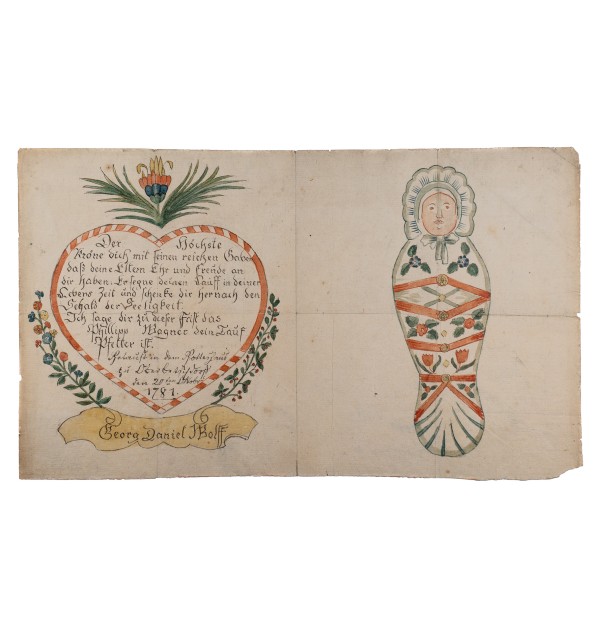 Der Höchste
Kröne dich mit seinen reichen Gaben
daß deine Eltern Ehr und Freude an
dir haben. Er seegne deinen Lauff in deiner
Lebens Zeit und schenke dir hernach den
Schatz der Seeligkeit.
Ich sage dir zu dieser Frist das
Phillipp Wagner dein Tauf
Pfetter ist.
in dem Gotteshaus
zu
den 20ten
1781.
Georg Daniel Wolff